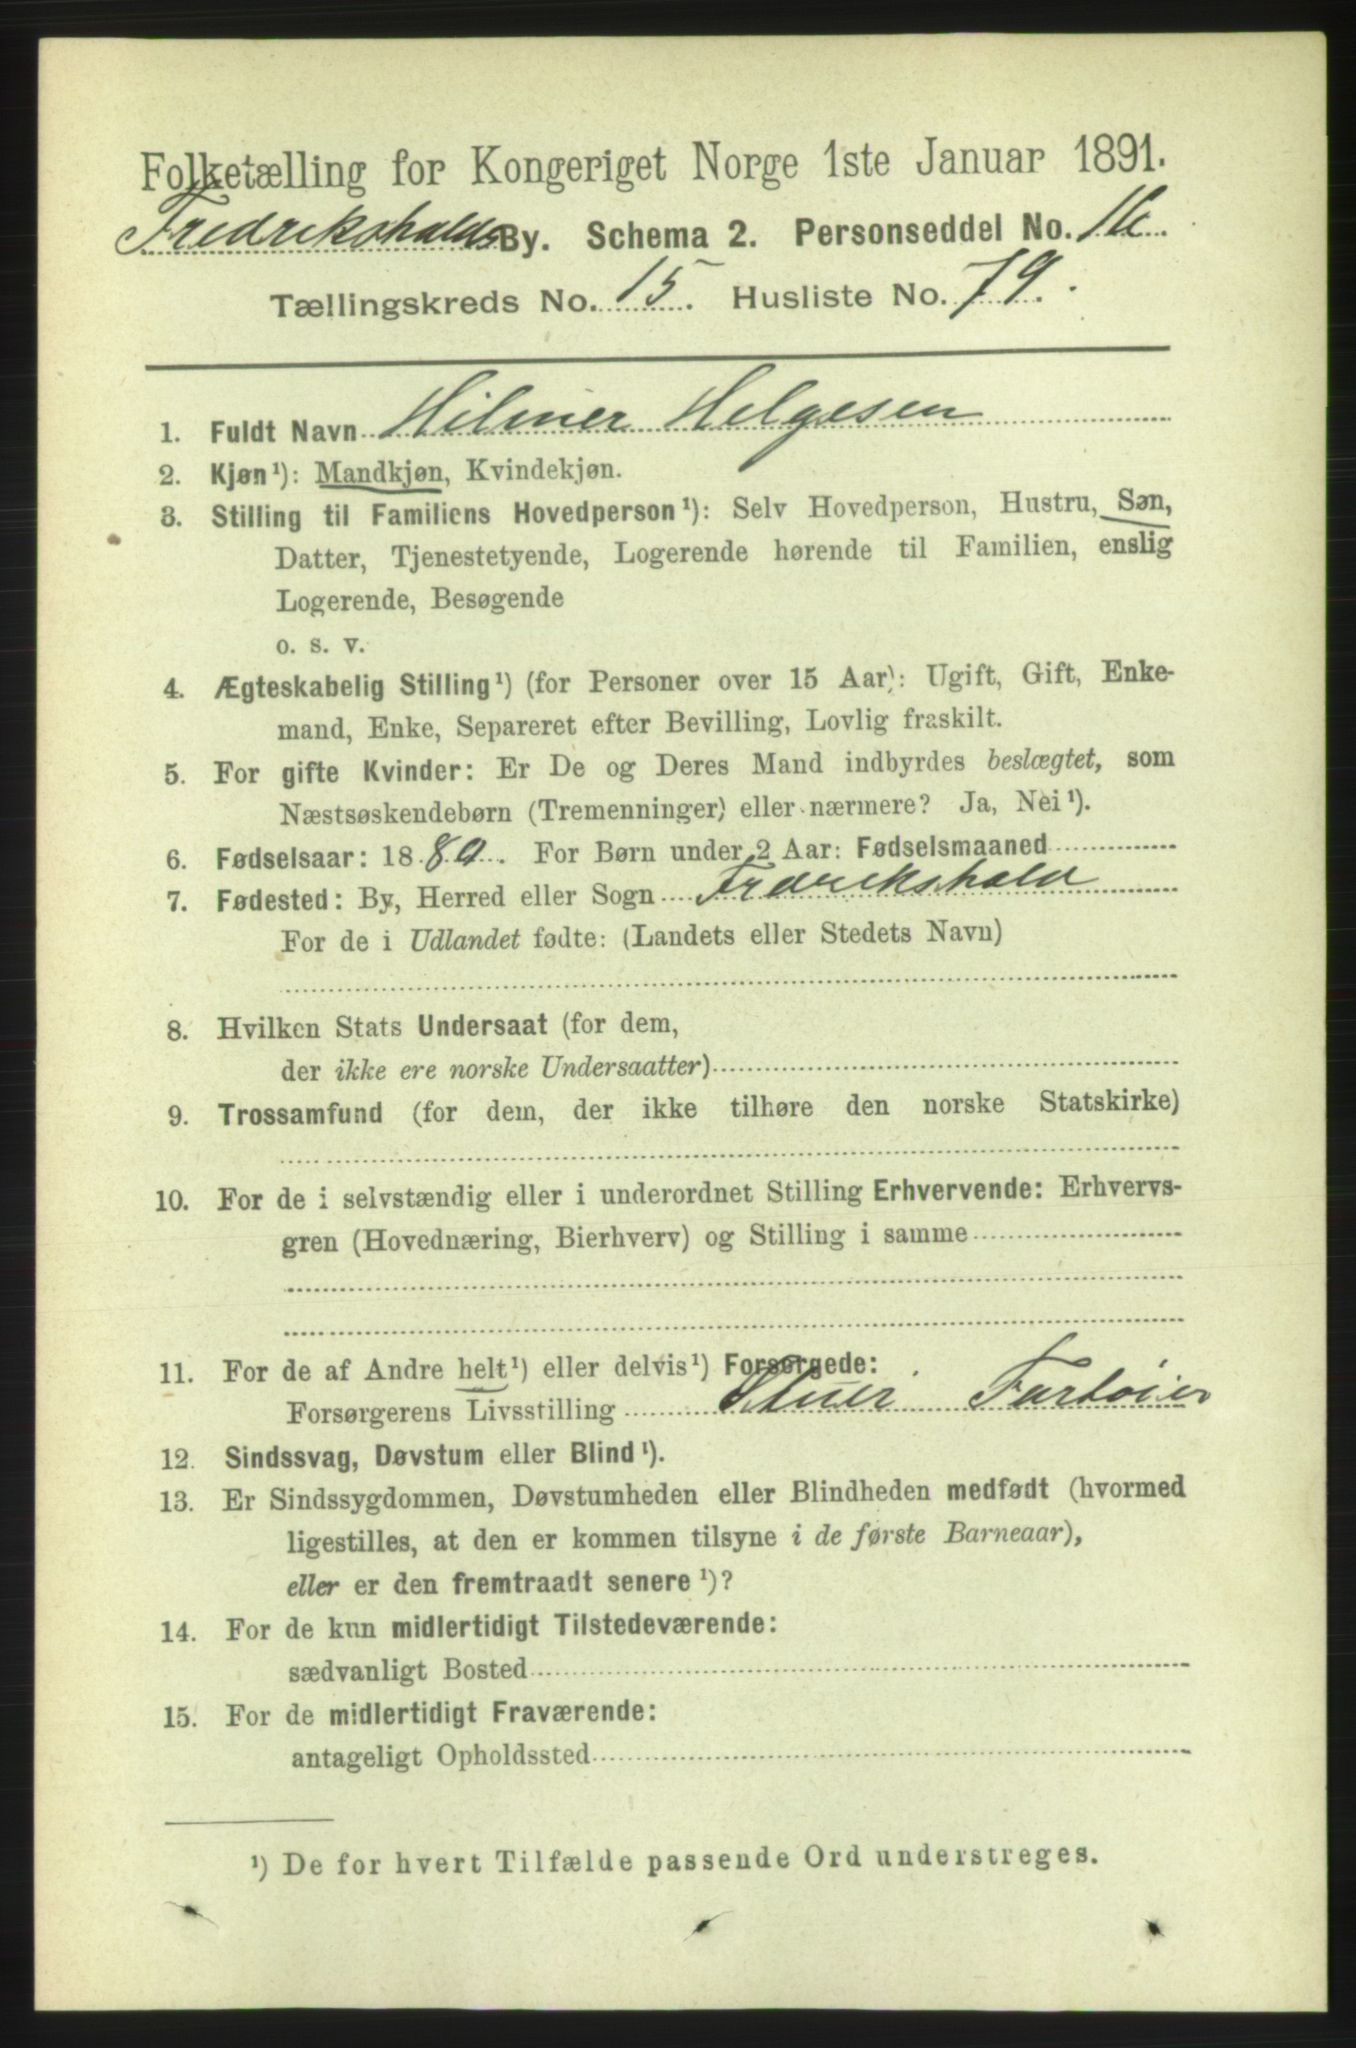 Folketælling for Kongeriget Norge 1ste Januar 1891.
Fredrikshalds By. Schema 2. Personseddel No. 16
Tællingskreds No. 15. Husliste No. 79.
1. Fuldt Navn Hilmer Helgesen
2. Kjøn¹): Mandkjøn, Kvindekjøn.
3. Stilling til Familiens Hovedperson¹): Selv Hovedperson, Hustru, Søn,
Datter, Tjenestetyende, Logerende hørende til Familien, enslig
Logerende, Besøgende
o. s. v.
4. Ægteskabelig Stilling¹) (for Personer over 15 Aar): Ugift, Gift, Enke-
mand, Enke, Separeret efter Bevilling, Lovlig fraskilt.
5. For gifte Kvinder: Er De og Deres Mand indbyrdes beslægtet, som
Næstsøskendebørn (Tremenninger) eller nærmere? Ja, Nei¹).
6. Fødselsaar: 18 80. For Børn under 2 Aar: Fødselsmaaned
7. Fødested: By, Herred eller Sogn Frdrikshald
For de i Udlandet fødte: (Landets eller Stedets Navn)
8. Hvilken Stats Undersaat (for dem,
der ikke ere norske Undersaatter)
9. Trossamfund (for dem, der ikke tilhøre den norske Statskirke)
10. For de i selvstændig eller i underordnet Stilling Erhvervende: Erhvervs-
gren (Hovednæring, Bierhverv) og Stilling i samme
11. For de af Andre helt¹) eller delvis¹) Forsørgede:
Forsørgerens Livsstilling Stuer Fartøier
12. Sindssvag, Døvstum eller Blind¹).
13. Er Sindssygdommen, Døvstumheden eller Blindheden medfødt (hvormed
ligestilles, at den er kommen tilsyne i de første Barneaar),
eller er den fremtraadt senere¹)?
14. For de kun midlertidigt Tilstedeværende:
sædvanligt Bosted
15. For de midlertidigt Fraværende:
antageligt Opholdssted
¹) De for hvert Tilfælde passende Ord understreges.